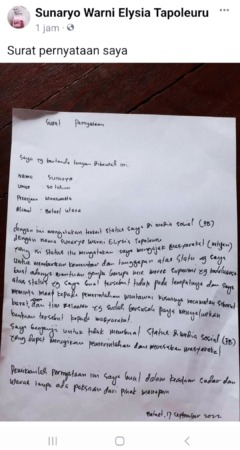 Sunaryo Warni Elysia Tapoleuru
1 jam
Surat pernyataan saya
Surat Pernyataan
Saya yg bertanda tangan dibawah ini:
Nama Sunaryo
Umur 50 tahun
Alamat : Betaet Utara
dengan ini menyatakan bahwa status saya di media social (FB)
dengan nama Sunaryo Warni Elysia Tapoleuru
yang isi status itu menyatakan saya mengajak masyarakat (netizen)
untuk memberikan komentar dan tanggapan atas status yg saya
buat adanya bantuan gempa berupa
atas status yg saya buat tersebut tidak pada tempatnya dan saya
meminta maaf kepada pemerintahan khususnya kecamatan siberut
barat dan tim relawan yg sudah bersusah payah menyalurkan
bantuan tersebut kepada masyarakat.
Saya berjanji untuk tidak membuat status di media social (FB)
yang dapat merugikan pemerintahan dan meresahkan masyarakat
Demikianlah pernyataan ini saya buat dalam keadaan sadar dan
tanpa ada paksaan dari pihak manapun
Betaet, 17 September 2022